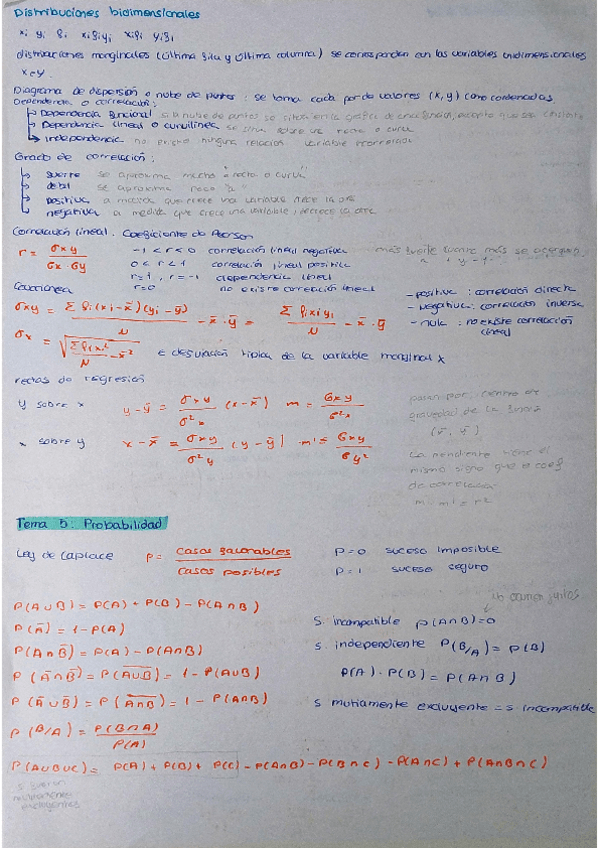 Distribuciones bidimensionales
xi yi fi xifiyi xifi yifi
distribuciones marginales (última fila y última columna) se corresponden con las variables unidimensionales
x e y.
Diagrama de dispersión o nube de puntos: se toma cada par de valores (x,y) como coordenadas
Dependencia o correlación:
↳ Dependencia funcional si la nube de puntos se sitúa en la gráfica de una función, excepto que sea constante
↳ Dependencia lineal o curvilínea se sitúa sobre una recta o curva
↳ independencia no ninguna relación variable incorrelada
Grado de correlación:
↳ fuerte se aproxima mucho a recta o curva
↳ débil se aproxima poco "a"
↳ positiva a medida que crece una variable crece la otra
↳ negativa a medida que crece una variable decrece la otra
Correlación lineal. Coeficiente de Pearson
r = σxy / σx·σy
-1 < r < 0 correlación lineal negativa
más fuerte cuanto más se acerque a
0 < r < 1 correlación lineal positiva
r=1, r=-1 dependencia lineal
r=0 no existe correlación lineal
Covarianza
σxy = Σ fi(xi-x̄)(yi-ȳ) / N - x̄·ȳ = Σ fixiyi / N - x̄·ȳ
- positiva: correlación directa
- negativa: correlación inversa
- nula: no existe correlación
lineal
σx = √(Σfixi² / N - x̄²) desviación típica de la variable marginal x
rectas de regresión
y sobre x y-ȳ = σxy / σ²x (x-x̄) m = σxy / σ²x
x sobre y x-x̄ = σxy / σ²y (y-ȳ) m' = σxy / σy²
pasan por centro de
gravedad de la
(x̄, ȳ)
La pendiente tiene el
mismo signo que el coef
de correlación
m · m' = r²
Tema 5: Probabilidad
Ley de Laplace p = casos favorables / casos posibles
P=0 suceso imposible
P=1 suceso seguro
P(A∪B) = P(A) + P(B) - P(A∩B)
no ocurren juntos
P(Ā) = 1 - P(A)
S. incompatible P(A∩B)=0
P(A∩B̄) = P(A) - P(A∩B)
S. independiente P(B/A) = P(B)
P(Ā∩B̄) = P(A∪B)‾ = 1 - P(A∪B)
P(A) · P(B) = P(A∩B)
P(Ā∪B̄) = P(A∩B)‾ = 1 - P(A∩B)
S mutiamente excluyente = s. incompatible
P(B/A) = P(B∩A) / P(A)
P(A∪B∪C) = P(A) + P(B) + P(C) - P(A∩B) - P(B∩C) - P(A∩C) + P(A∩B∩C)